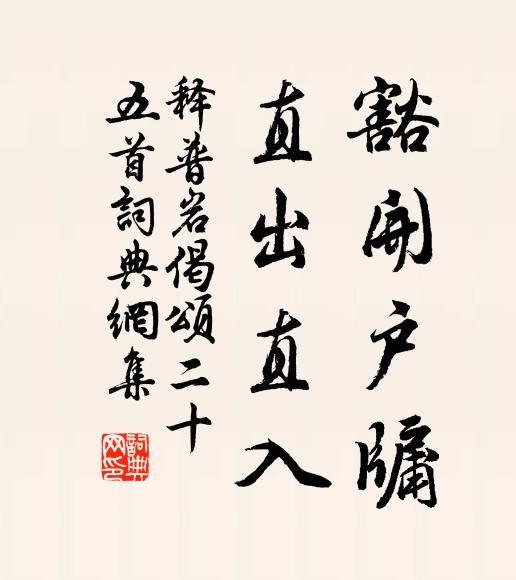 豁開戶牖
直出直入
释普岩偈頌二十
五首詞典網集
詞典网印